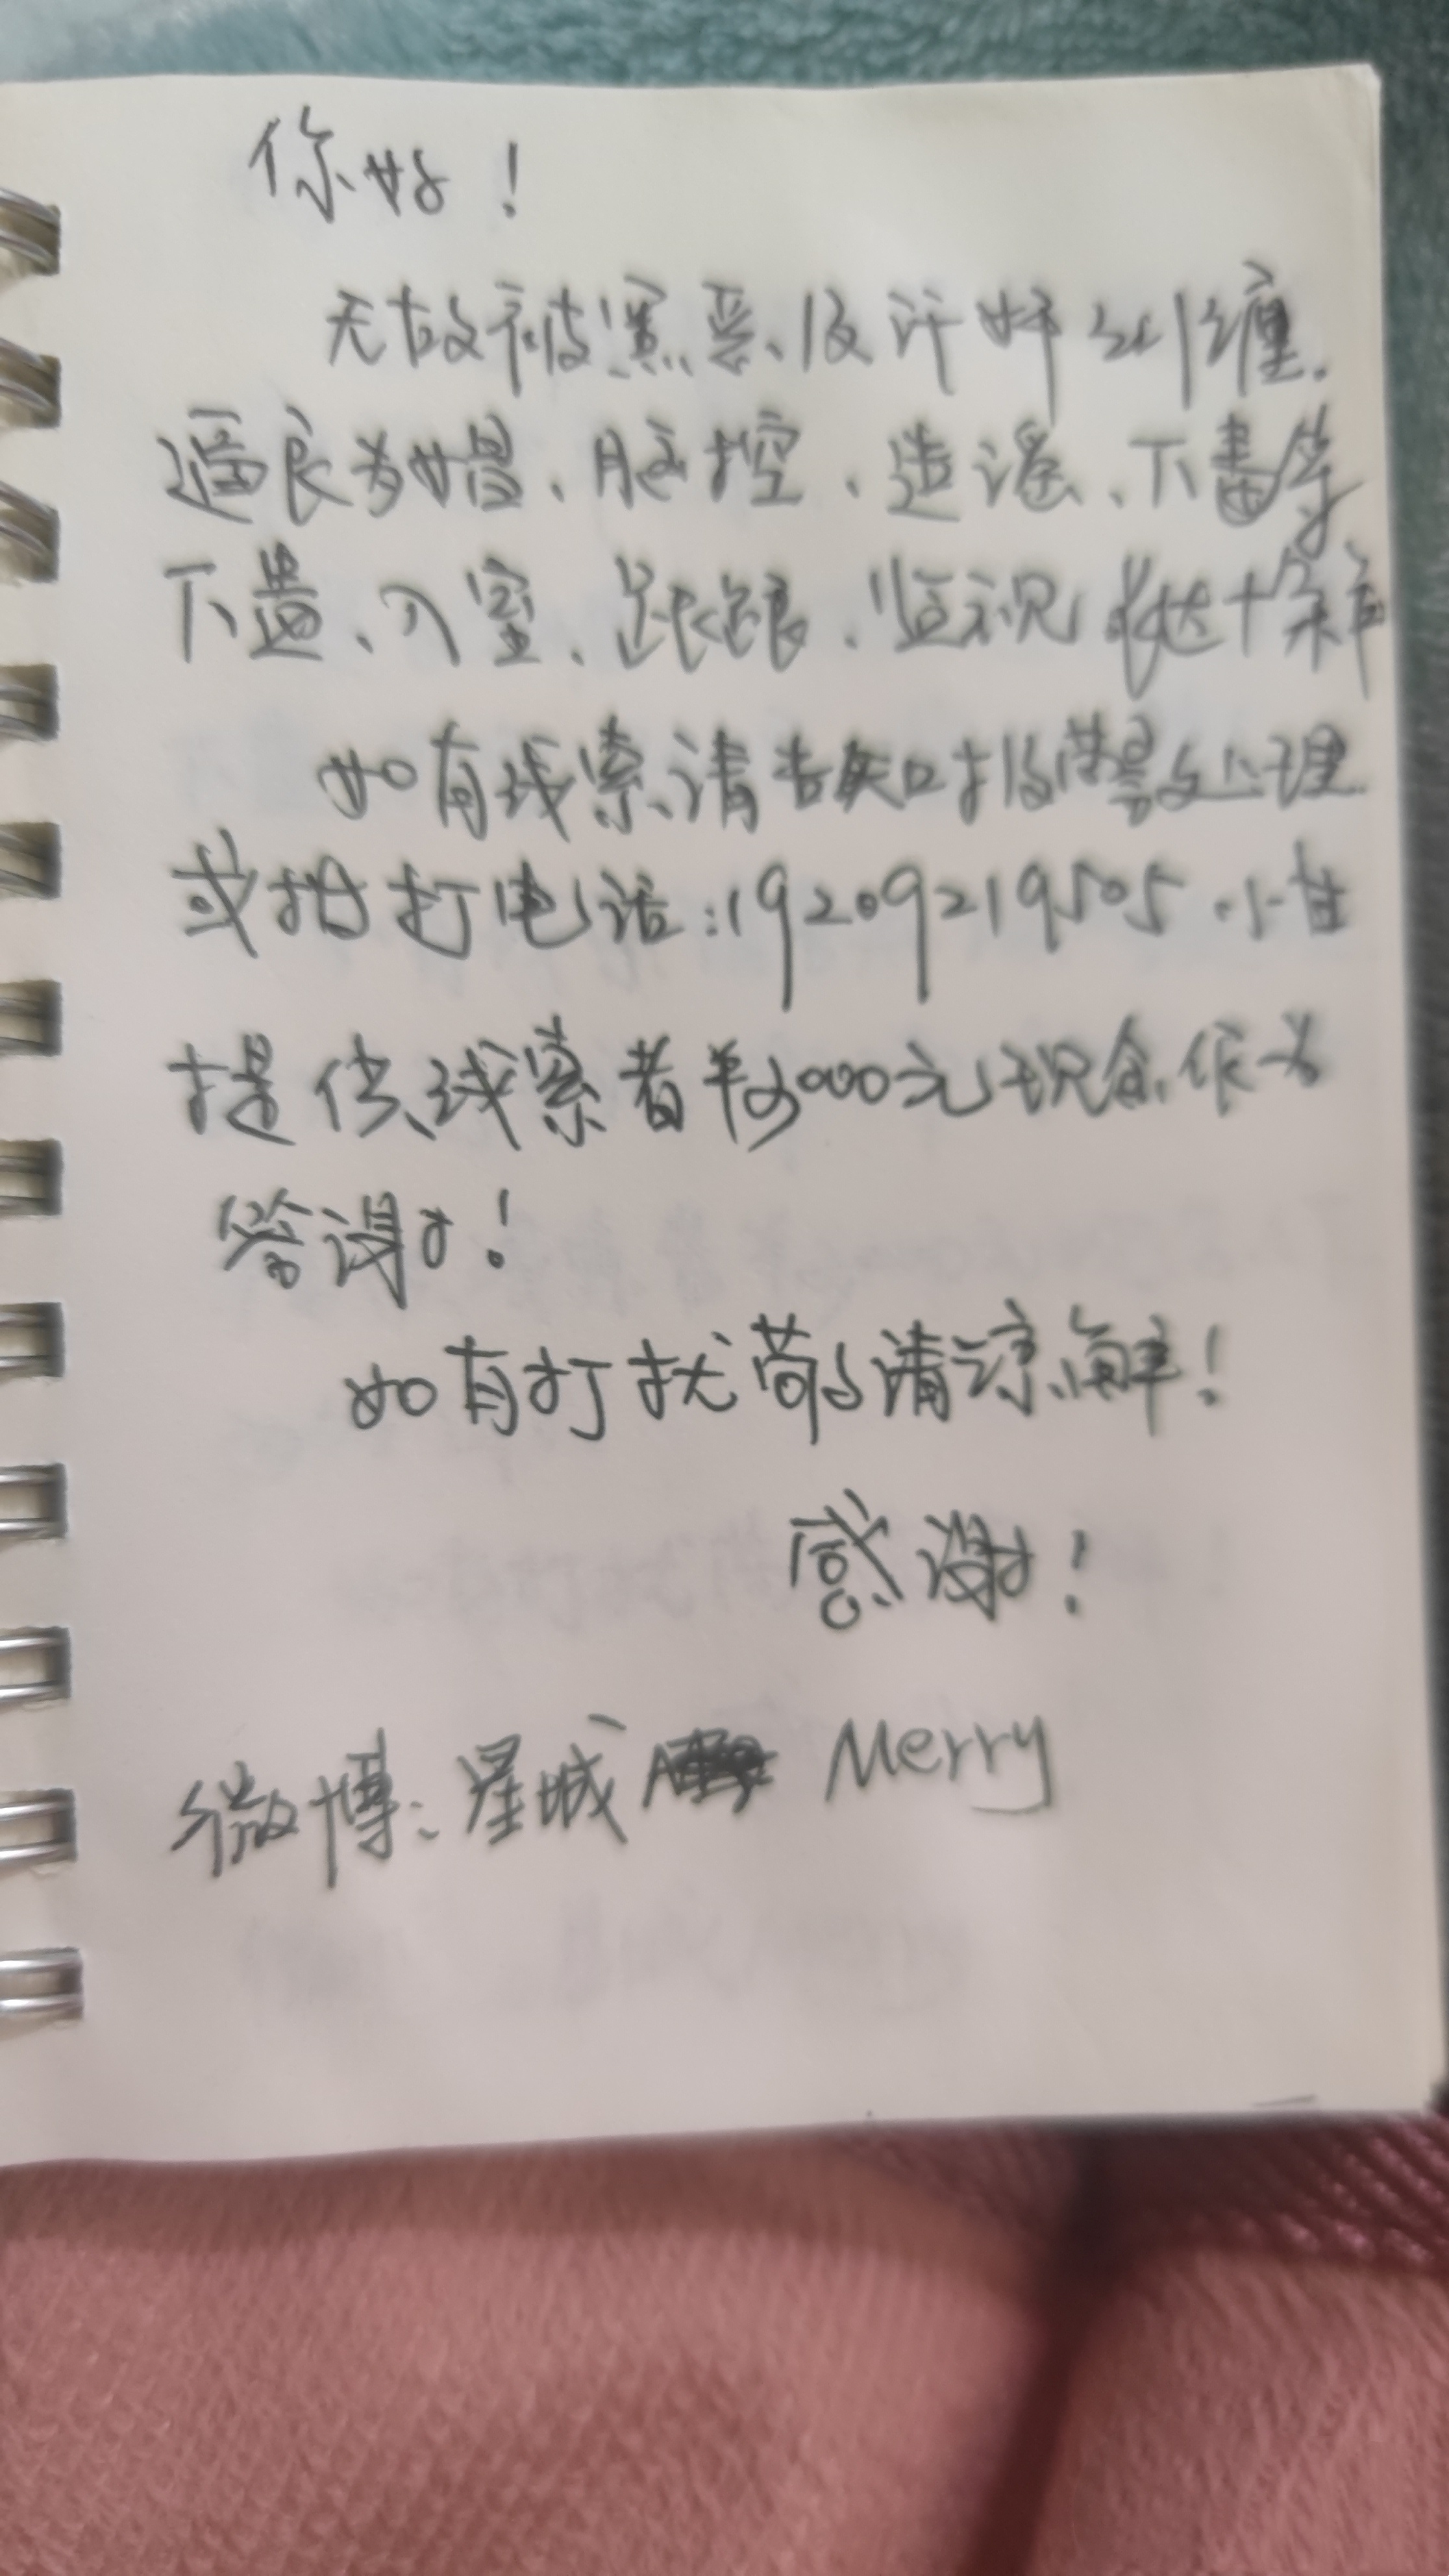 你好!
无故被黑恶及奸纠缠.
逼良为娼、脑控、造谣、下毒等
下蛊、入室、跟踪、监视长达十余年
如有线索请告知报警处理
或拨打电话:19209219505 小甘
提供线索者奖3000元现金作为
答谢!
如有打扰敬请谅解!
感谢!
微博:星城 Merry